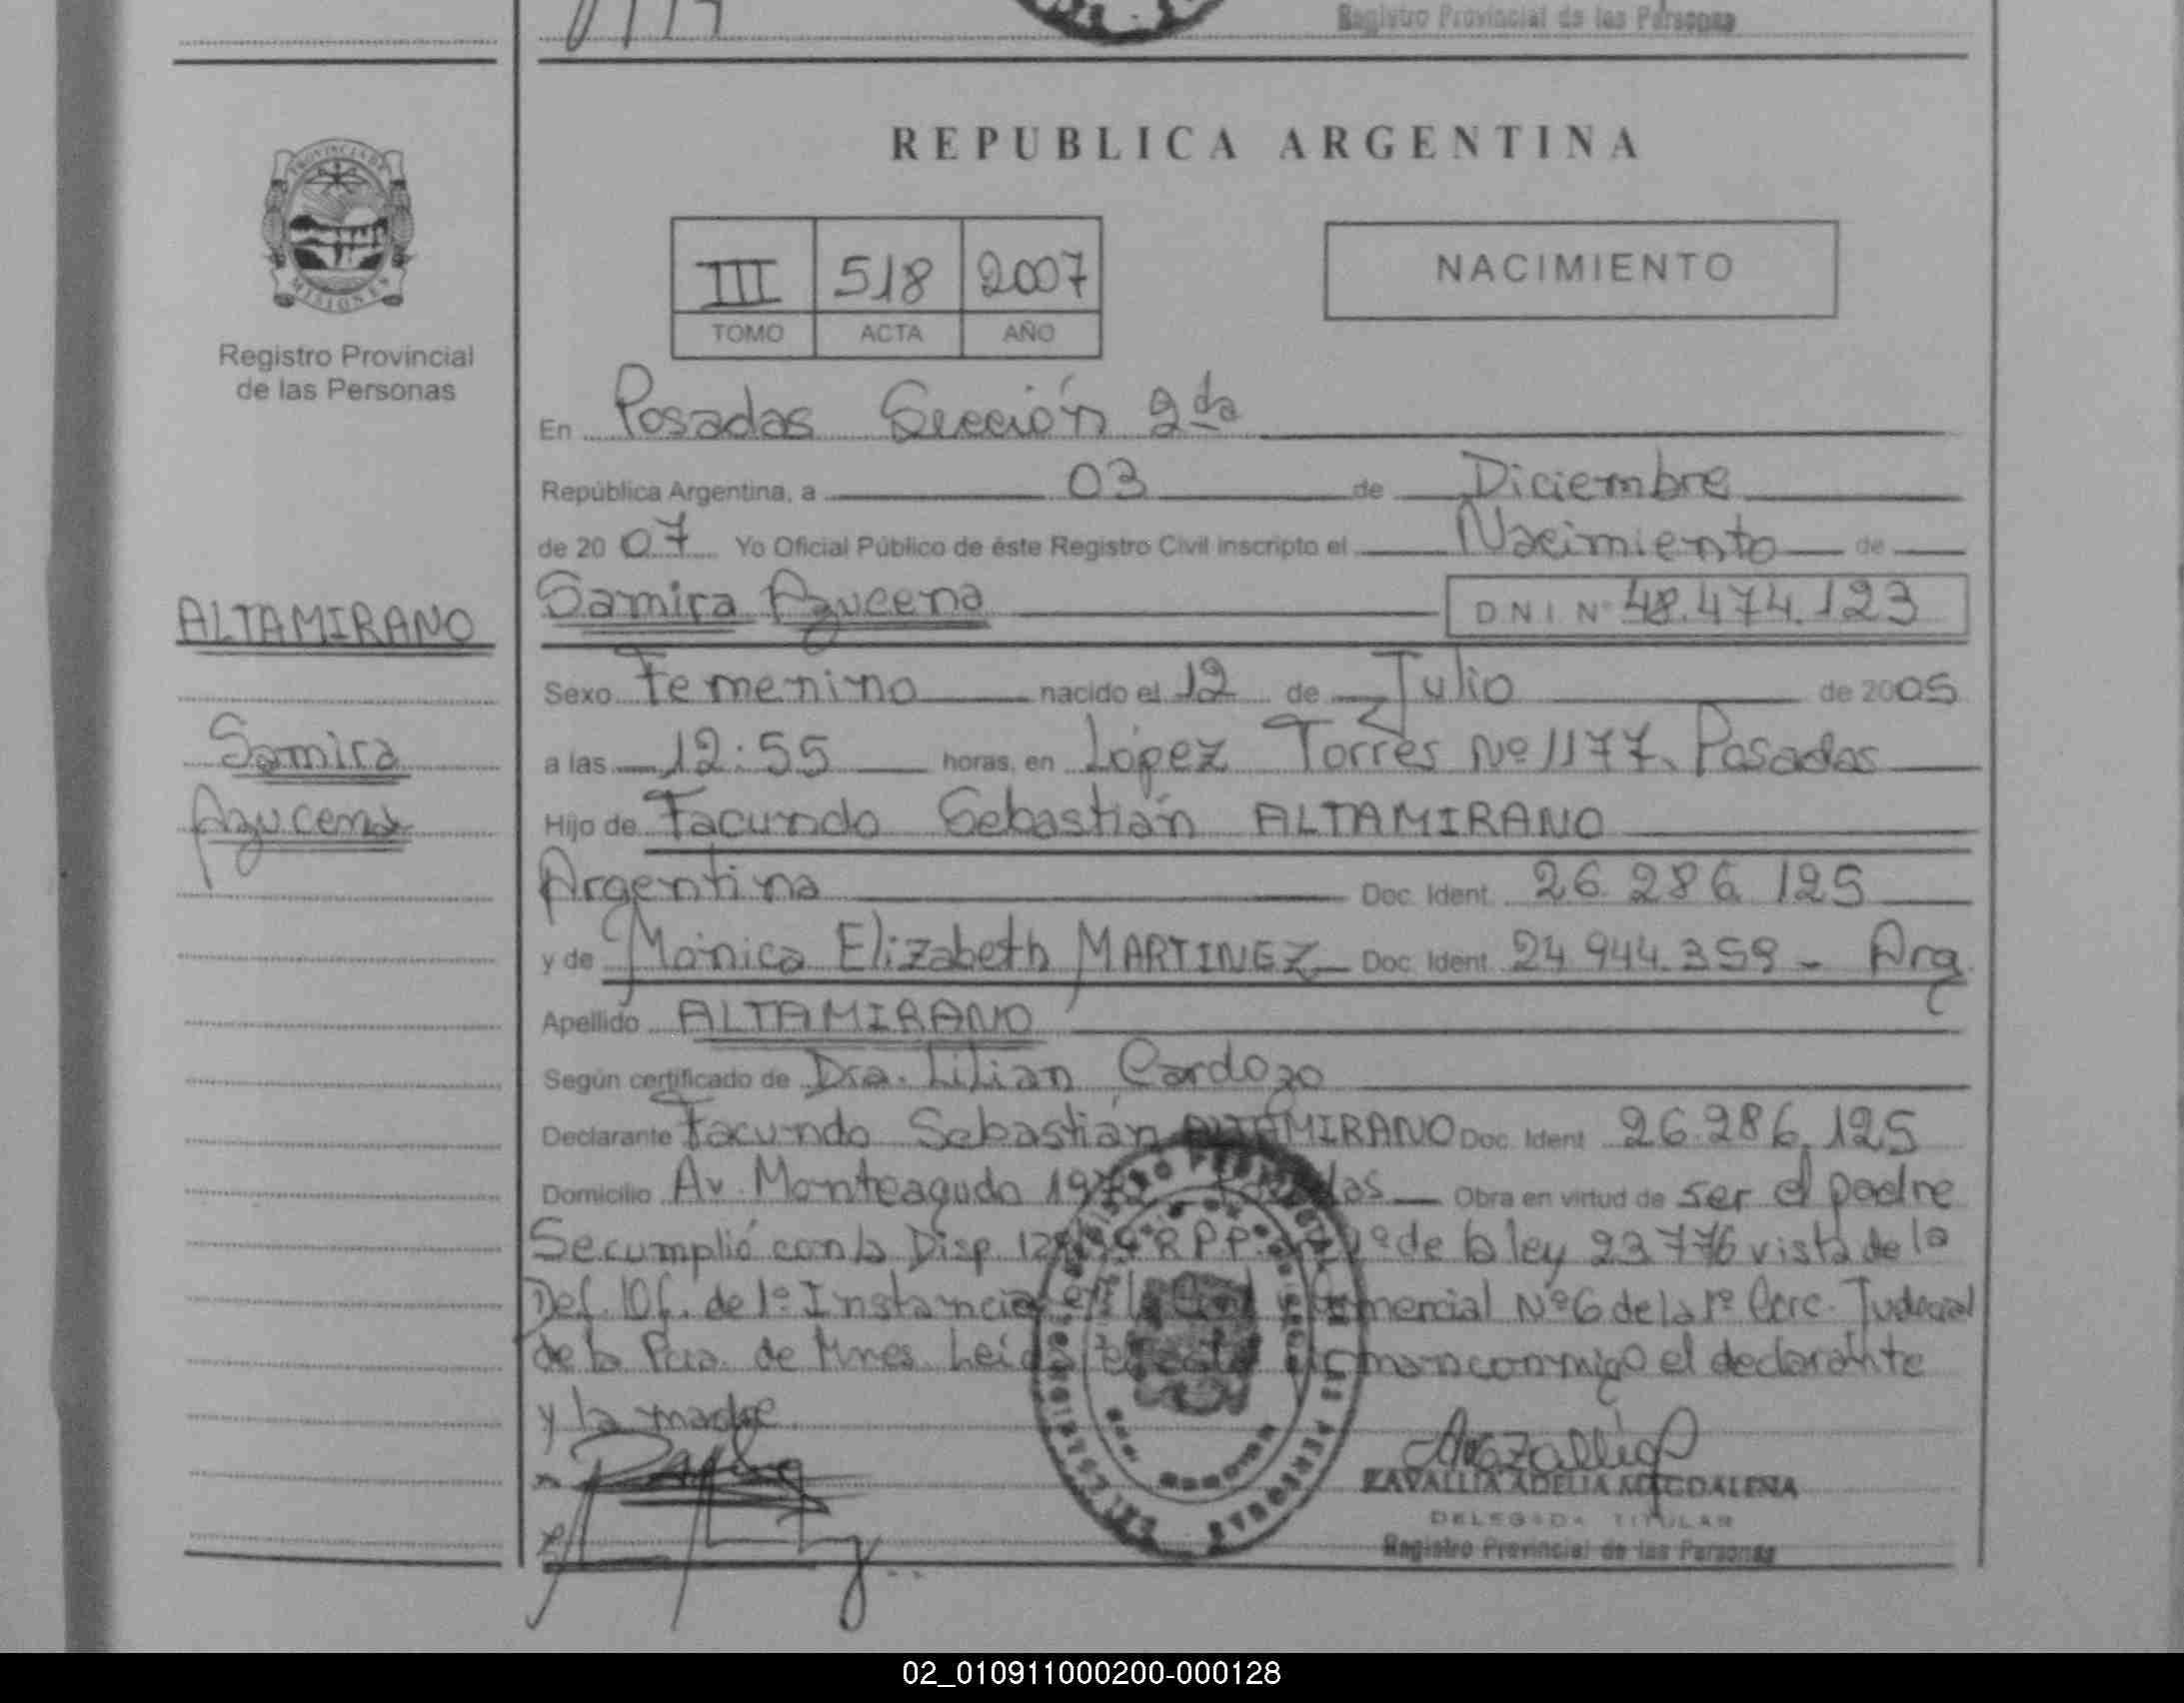 Registro Provincial de las Personas
PROVINCIA DE
MISIONES
Registro Provincial
de las Personas
REPUBLICA ARGENTINA
III 518 2007
TOMO ACTA AÑO
NACIMIENTO
En Posadas Sección 2da
República Argentina, a 03 de Diciembre
de 20 07 Yo Oficial Público de éste Registro Civil inscripto el Nacimiento de
ALTAMIRANO
Samira Azucena DNI Nº 48.474.123
Sexo Femenino nacido el 12 de Julio de 2005
Samira
Azucena
a las 12:55 horas, en López Torres Nº 1177. Posadas
Hijo de Facundo Sebastián ALTAMIRANO
Argentina Doc. Ident. 26.286.125
y de Mónica Elizabeth MARTINEZ Doc. Ident. 24.944.359 - Arg.
Apellido ALTAMIRANO
Según certificado de Dra. Lilian Cardozo
Declarante Facundo Sebastián ALTAMIRANO Doc. Ident. 26.286.125
Domicilio Av. Monteagudo Obra en virtud de ser el padre
Se cumplió con la Disp. R.P.P. de la ley 23776 vista de la
Def. Of. de 1º Instancia en lo Comercial Nº 6 de la 1º Circ. Judicial
de la Pcia. de Mnes. Leída conmigo el declarante
y la madre
ZAVALLIA ADELIA MAGDALENA
DELEGADA TITULAR
Registro Provincial de las Personas
02_010911000200-000128